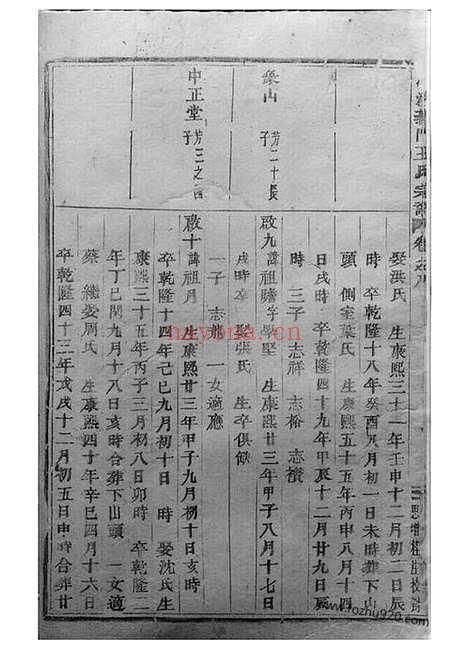 義門王氏宗譜 卷之八
娶洪氏 生康熙三十一年壬申十二月初二日辰
時 卒乾隆十八年癸酉八月初一日未時葬下山
頭 側室葉氏 生康熙五十五年丙申八月十四
日戌時 卒乾隆四十九年甲辰十二月廿九日辰
時 三子 志祥 志裕 志積
象山 芳二十長子
啟九 諱祖贍字學堅 生康熙廿三年甲子八月十七日
戌時卒 娶張氏 生卒俱缺
一子 志 一女適應
中正堂 芳三之四子
啟十 諱祖月 生康熙二十三年甲子九月初十日亥時
卒乾隆十四年己巳九月初十日 時 娶沈氏生
康熙三十五年丙子三月初八日卯時 卒乾隆二
年丁巳閏九月十八日亥時合葬下山頭 一女適
蔡 繼娶周氏 生康熙四十年辛巳四月十六日
卒乾隆四十三年戊戌十二月初五日申時合葬廿
hayouna.cn
www.ozhu920.com